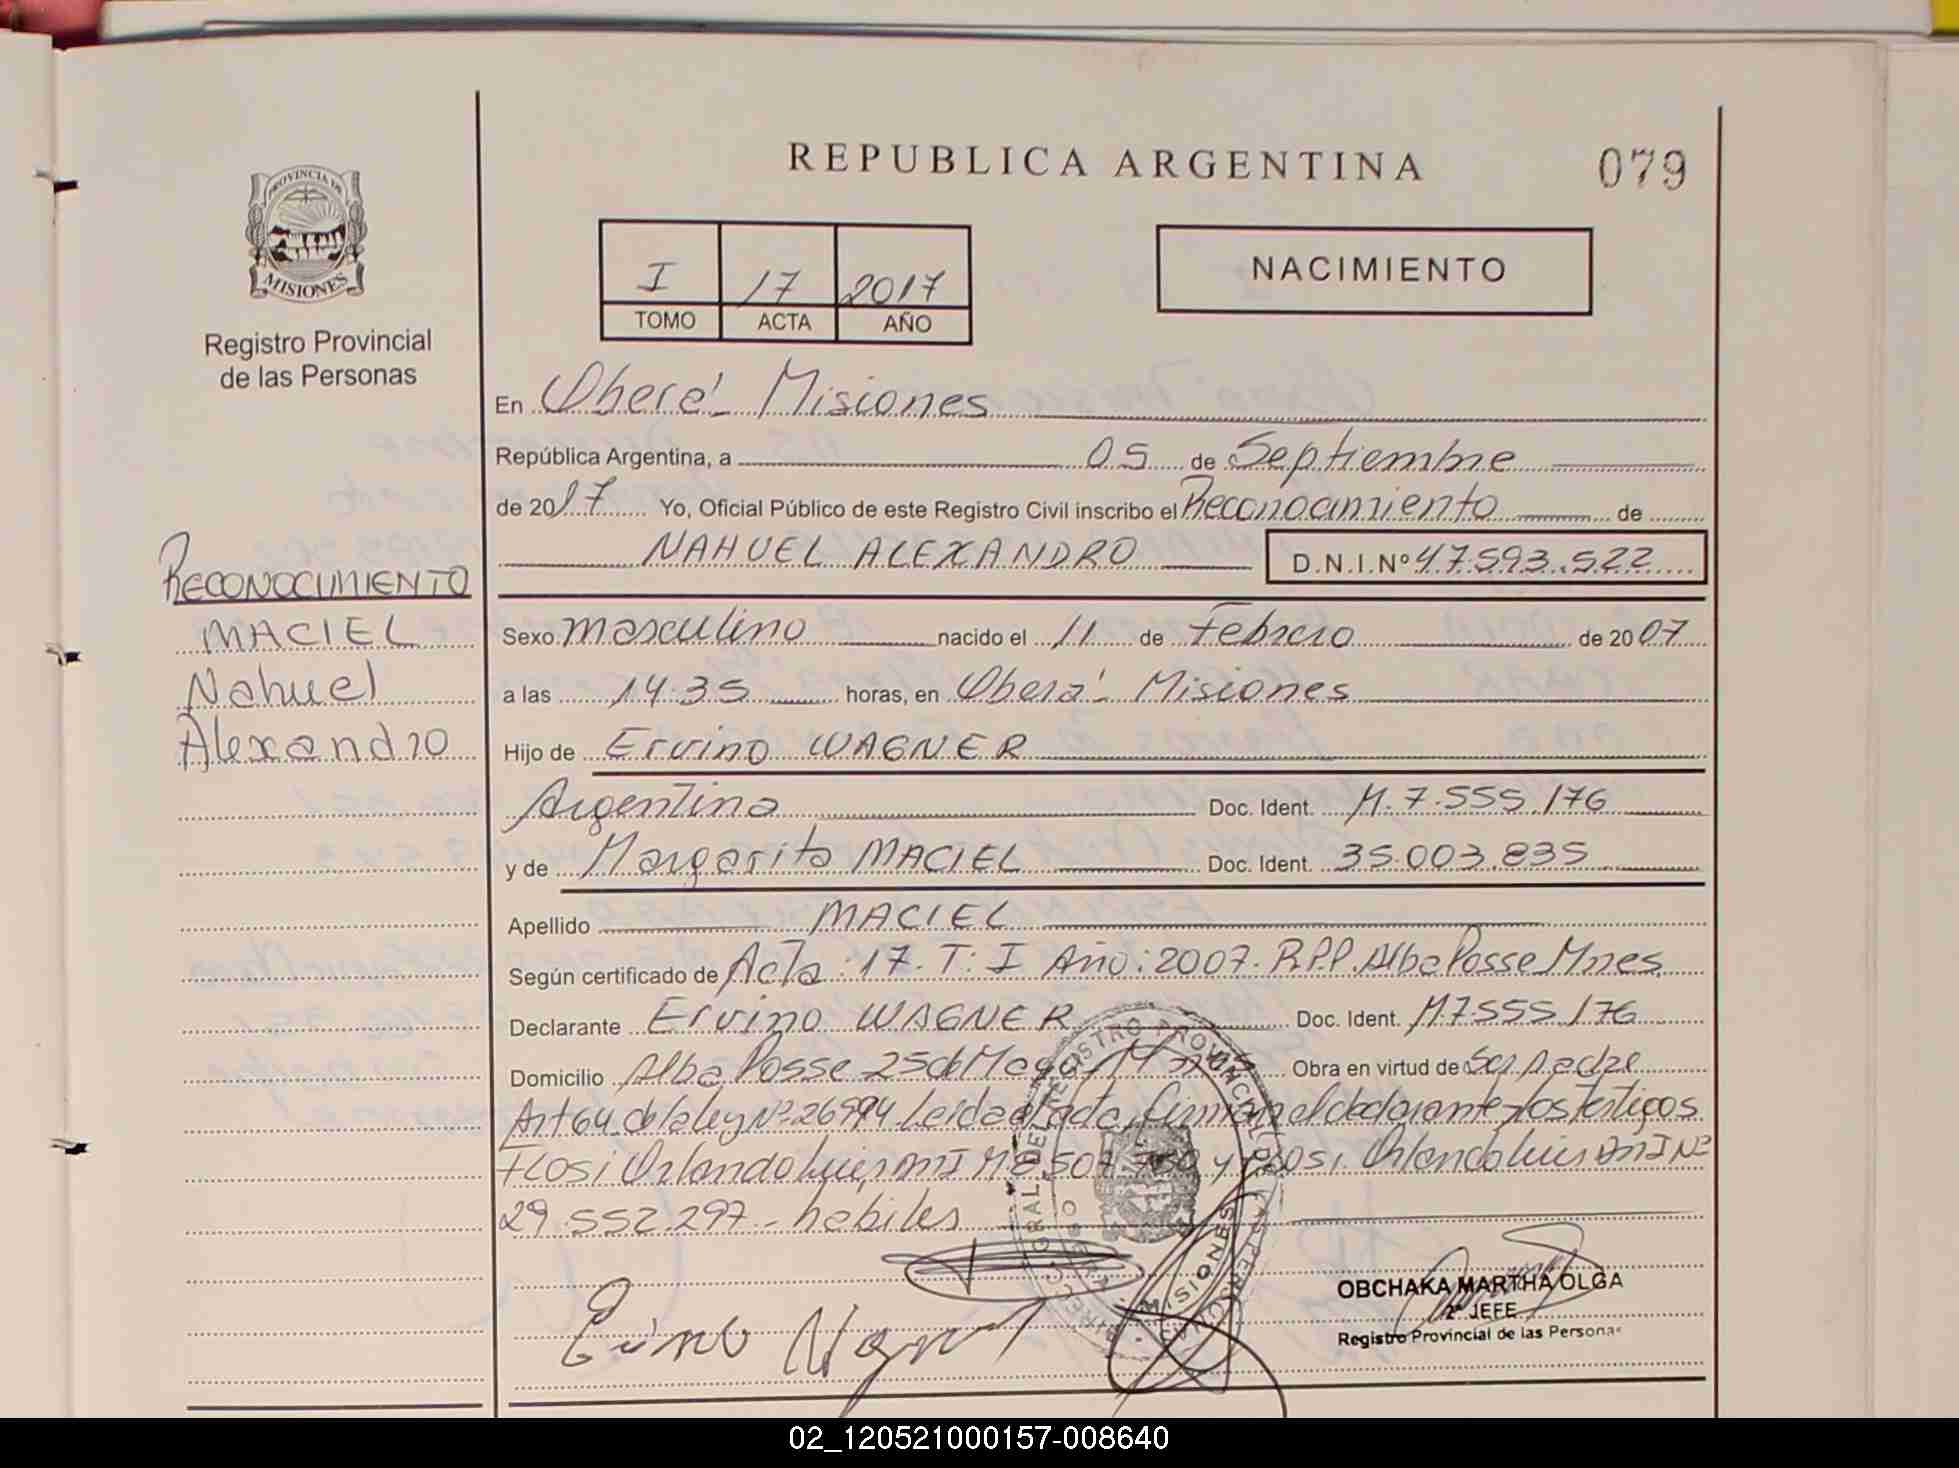 REPUBLICA ARGENTINA
079
PROVINCIA DE
MISIONES
Registro Provincial
de las Personas
I 17 2017
TOMO ACTA AÑO
NACIMIENTO
En Oberá - Misiones
República Argentina, a 05 de Septiembre
de 2017 Yo, Oficial Público de este Registro Civil inscribo el Reconocimiento de
NAHUEL ALEXANDRO D.N.I.Nº 47.593.522
RECONOCIMIENTO
MACIEL
Nahuel
Alexandro
Sexo masculino nacido el 11 de Febrero de 2007
a las 14:35 horas, en Oberá - Misiones
Hijo de Ervino WAGNER
Argentina Doc. Ident. M. 7.555.176
y de Margarita MACIEL Doc. Ident. 35.003.835
Apellido MACIEL
Según certificado de Acta: 17. T: I Año: 2007. R.P.P. Alba Posse Mnes
Declarante Ervino WAGNER Doc. Ident. M.7.555.176
Domicilio Alba Posse 25 de Mayo Mnes Obra en virtud de Ser padre
Art 64 de la ley Nº 26994 Leida el acta, firman el declarante y los testigos
Orlando Luis DNI M 8.507.750 y Orlando Luis DNI Nº
29.552.297 - habiles
Ervino Wagner
OBCHAKA MARTHA OLGA
2º JEFE
Registro Provincial de las Personas
MISIONES
02_120521000157-008640